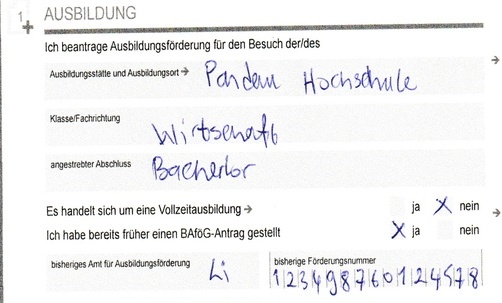 1 AUSBILDUNG
Ich beantrage Ausbildungsförderung für den Besuch der/des
Ausbildungsstätte und Ausbildungsort → Hochschule
Klasse/Fachrichtung
Wirtschaft
angestrebter Abschluss Bacherlor
Es handelt sich um eine Vollzeitausbildung → ja X nein
Ich habe bereits früher einen BAföG-Antrag gestellt X ja nein
bisheriges Amt für Ausbildungsförderung Li bisherige Förderungsnummer
123498760124578